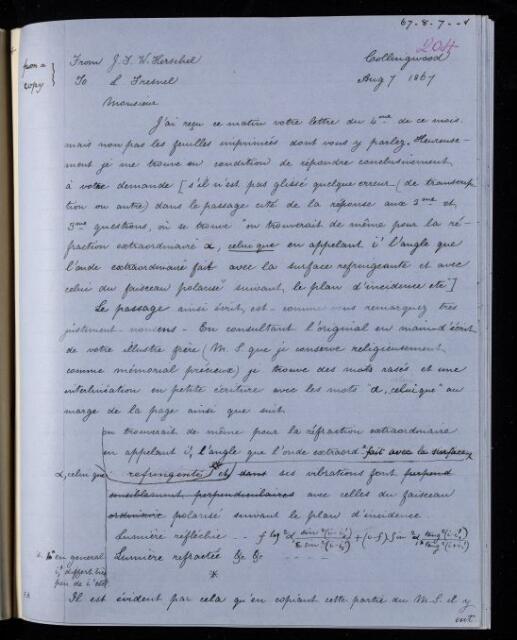 67.8.7.-1
204
From J. F. W. Herschel
Collingwood
To L Fresnel
Aug 7 1867
copy
Monsieur
J'ai reçu ce matin votre lettre du 4me de ce mois
mais non pas les feuilles imprimées dont vous y parlez. Heureuse-
ment je me trouve en condition de répondre conclusivement
à votre demande [s'il n'est pas glissé quelque erreur (de transcrip
tion ou autre) dans le passage cité de la réponse aux 2me et
3me questions, où se trouve "on trouverait de même pour la ré-
fraction extraordinaire α, celui que en appelant i' l'angle que
l'onde extraordinaire fait avec la surface refringeante et avec
celui du faisceau polarisé suivant le plan d'incidence etc]
Le passage ainsi écrit est - comme vous remarquez très
justement - nonsens - En consultant l'original en main d'écrit
de votre illustre frère (M.S que je conserve religieusement
comme mémorial précieux) je trouve des mots rasés et une
interlinéation en petite écriture avec les mots "α, celui que" au
marge de la page ainsi que suit.
on trouverait de même pour la réfraction extraordinaire
en appelant i', l'angle que l'onde extraord. fait avec la surface
α, celui que
refringente et dans ses vibrations font perpend
sensiblement perpendiculaires avec celles du faisceau
ordinaire polarisé suivant le plan d'incidence
Lumière réfléchie
Lumière refractée &c &c
en general
i' differt très
peu de
*
Il est évident par cela qu'en copiant cette partie du M.S. il y